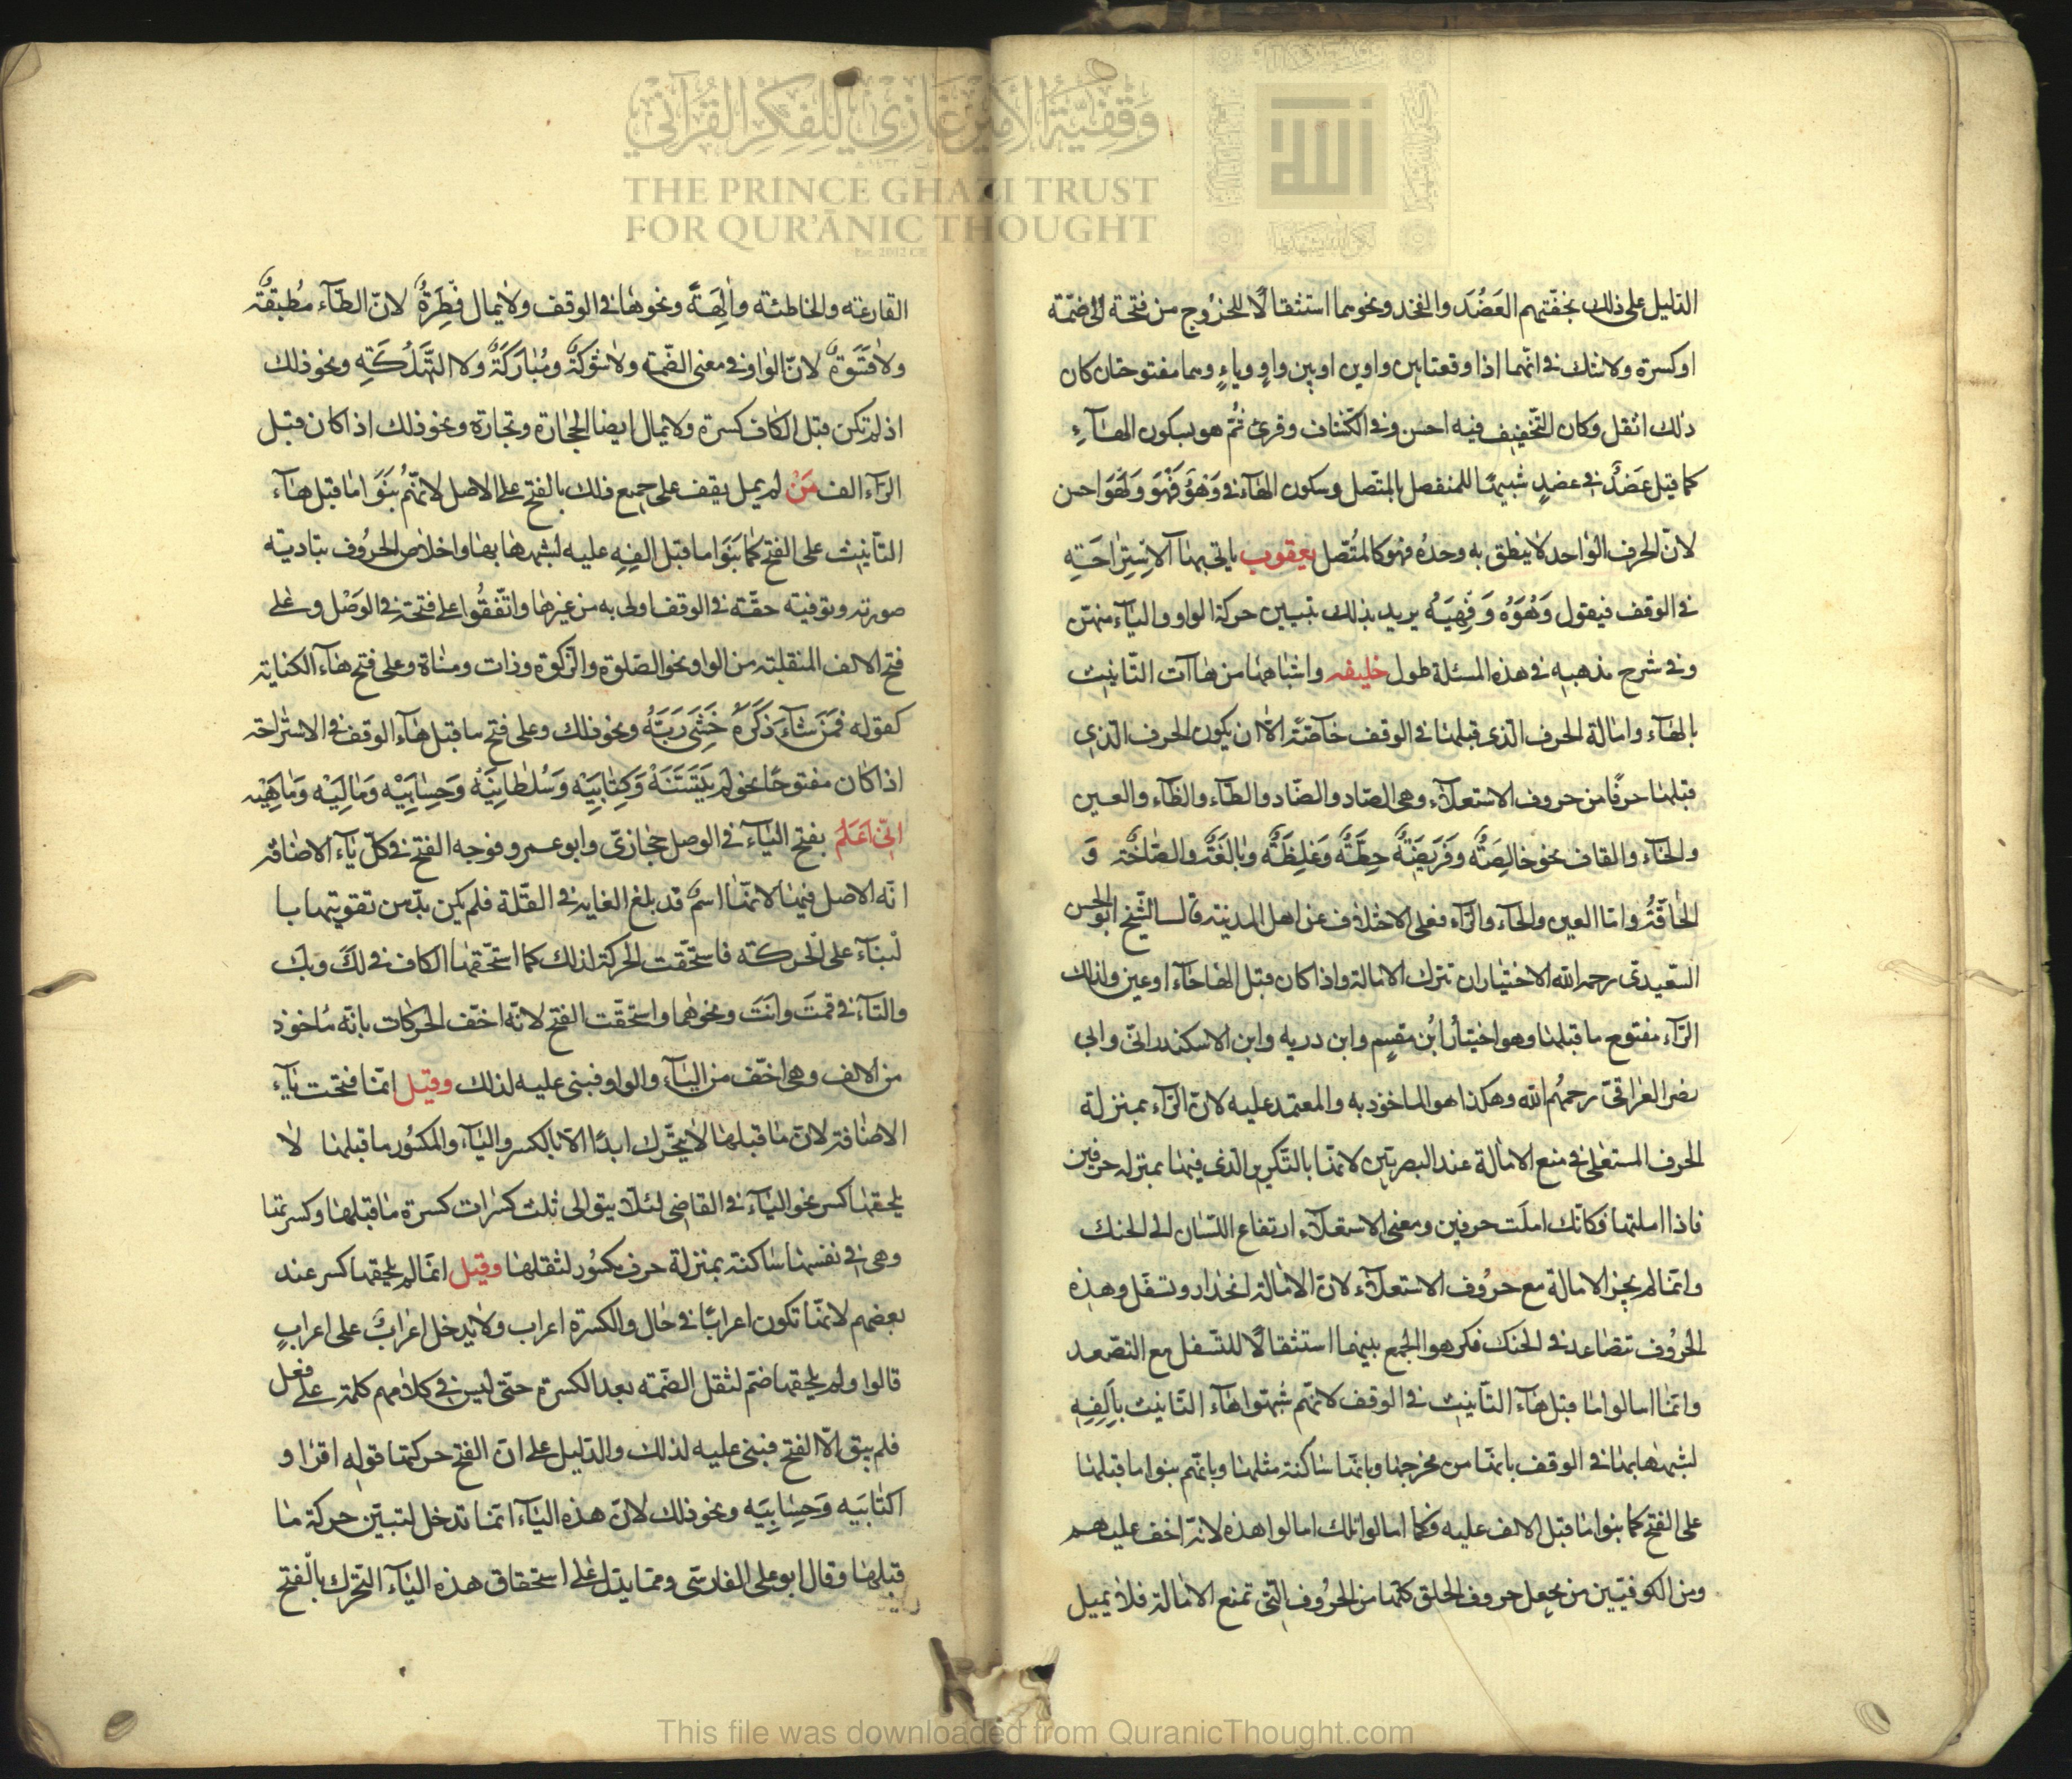 وقفية الأمير غازي للفكر القرآني
THE PRINCE GHAZI TRUST
FOR QUR'ĀNIC THOUGHT
الدليل على ذلك بخفتهم العَضُد والفخذ ونحوهما استثقالًا للخرُوج من فتحة الى ضمّة
او كسرة ولا شك في انهما اذا وقعتا بين واوين او بين واوٍ وياءٍ وهما مفتوحتان كان
ذلك اثقل وكان التخفيف فيه احسن وفي الكشاف وقرئ ثُم هو بسكون الهاءِ
كما قيل عَضْدٌ في عضدٍ شبيهًا للمنفصل بالمتصل وسكون الهاء في وَهْوَ فَهْوَ وَلَهْوَ احسن
لانّ الحرف الواحد لا ينطق به وحدُه فهو كالمُتّصل يعقوب ياتي بهاء الاِستِراحَتِه
في الوقف فيقول وَهُوَهْ وَفَهِيَهْ يريد بذلك تبيين حركة الواو والياء منهن
وفي شرح مذهبه في هذه المسئلة طول خليفه واشباهها من هاآت التّانيث
بالهاء وامالة الحرف الذي قبلها في الوقف خآصّة الا ان يكون الحرف الذي
قبلها حرفًا من حروف الاستعلاء وهي الصاد والضّاد والطّاء والظاء والغين
والخاء والقاف نحو خالِصَةٌ وفَرِيضَةٌ حِطّةٌ وَغَلِظَةٌ وبالِغَةٌ والصّاخّة وَ
الحاقّةُ وامّا العين والحاء والرّاء فعلى الاختلاف عن اهل المدينة قال الشّيخ ابو الحسن
السّعيدي رحمه الله الاختيار ان تترك الامالة واذا كان قبل الهاء حاء او عين وكذلك
الرّاء مفتوح ما قبلها وهو اختيارُ ابن مقسِم وابن دريه وابن الاسكندراني وابي
نصر العراقيّ رحمهُم الله وهكذا هو الماخوذ به والمعتمد عليه لانّ الرّاء بمنزلة
الحرف المستعلى في منع الامالة عند البصريّين لانها بالتّكرير الذي فيها بمنزلة حرفين
فاذا املتها فكانّك املَت حرفين ومعنى الاستعلاء ارتفاع اللّسان الى الحنك
وانّما لم يجز الامالة مع حرُوف الاستعلاء لانّ الامالة انحدار وتسفّل وهذِه
الحرُوف تتصَاعد في الحنك فكرهوا الجمع بينهما استثقالًا للتّسفل مع التّصعد
وانّما امالوا ما قبل هآء التّانيث في الوقف لانهم شبّهوا هآء التانيث بِاَلِفِهِ
لشبهها بها في الوقف بانها من مخرجها وبانّها سَاكنة مثلها وبانهم بنوا ما قبلها
على الفتح كما بنوا ما قبل الالف عليه فكما امالوا تلك امالوا هذه لانه اخف عليهم
ومن الكوفيّين من يجعل حروف الحلق كلها من الحرُوف التي تمنع الامَالة فلا يميل
القارعة والخاطئة وآلِهَةً ونحوهَا في الوقف ولا يمال فِطرَةٌ لانّ الطّآء مُطبقَةٌ
ولا قَسْوَةٌ لانّ الواو في معنى الضّمة ولا شَوْكَةٌ ومُبَارَكَةٌ ولا التَّهلُكَةِ ونحو ذلك
اذ لم تكن قبل الكاف كسرة ولا يمال ايضا الحجَارَة وتجارة ونحو ذلك اذا كان قبل
الرّاء الف مَنْ لم يمل يقف على جميع ذلك بالفتح على الاصل لانهُم بَنَوا ما قبل هآء
التّانيث على الفتح كما بَنَوا ما قبل الفِهِ عليه لشبهها بها واخلاص الحرُوف بتادية
صورته وتوفية حقّه في الوقف اولى به من غيرها واتّفقُوا على فتحة في الوَصْل وعلى
فتح الالف المنقلبة من الواو نحو الصّلوة والزكوة وذات ومنَاة وعلى فتح هآء الكناية
كقوله فمَن شآءَ ذَكَرَهُ خَشِيَ رَبَّهُ ونحو ذلك وعلى فتح ما قبل هآء الوقف في الاستراحة
اذا كان مفتوحًا نحو لم يَتَسَنَّهْ وَكِتابِيَهْ وَسُلطَانِيَهْ وَحِسَابِيَهْ وَمَالِيَهْ وَمَاهِيَهْ
انّى اَعْلَمُ بفتح اليآء في الوصل حجازيّ وابو عمرو فوجه الفتح في كلّ يآء الاضافة
انّه الاصل فيها لانهّا اسمٌ قد بلغ الغاية في القّلة فلم يكن بدّ من تقويتها با
لبنآء على الحركة فاستحّقت الحركة لذلك كما استحقّها الكاف في لكَ وبكَ
والتآء في قمتَ وانتَ ونحوهما واستحقّت الفتح لانّه اخفّ الحركات بانّه مأخوذ
من الالف وهي اخفّ من اليآء والواو فبنى عليه لذلك وقيل انّما فتحت يآء
الاضافة لانّ ما قبلها لا يتحّرك ابدًا الاّ بالكسر واليآء والمكسُور ما قبلها لا
يلحقها كسر نحو اليآء في القاضى لئلاّ يتوالى ثلث كسرات كسرة ما قبلها وكسرتها
وهي في نفسها ساكنة بمنزلة حرف مكسُور لثقلها وقيل انّما لم يلحقها كسر عند
بعضهم لانّها تكون اعرابًا في حال والكسرة اعراب ولا يدخل اعرَابٌ على اعرابٍ
قالوا ولم يلحقها ضمّ لثقل الضّمة بعد الكسرة حتّى ليس في كلامهم كلمة على فعل
فلم يبق الاّ الفتح فبنى عليه لذلك والدّليل على انّ الفتح حركتها قوله اقرَاو
اكتابَيه وَحِسَابِيَه ونحو ذلك لانّ هذه اليآء انّما تدخل لتبيّن حركة ما
قبلها وقال ابو على الفارسّى ومّما يدّل على استحقاق هذه اليآء التّحرك بالفتح
This file was downloaded from QuranicThought.com